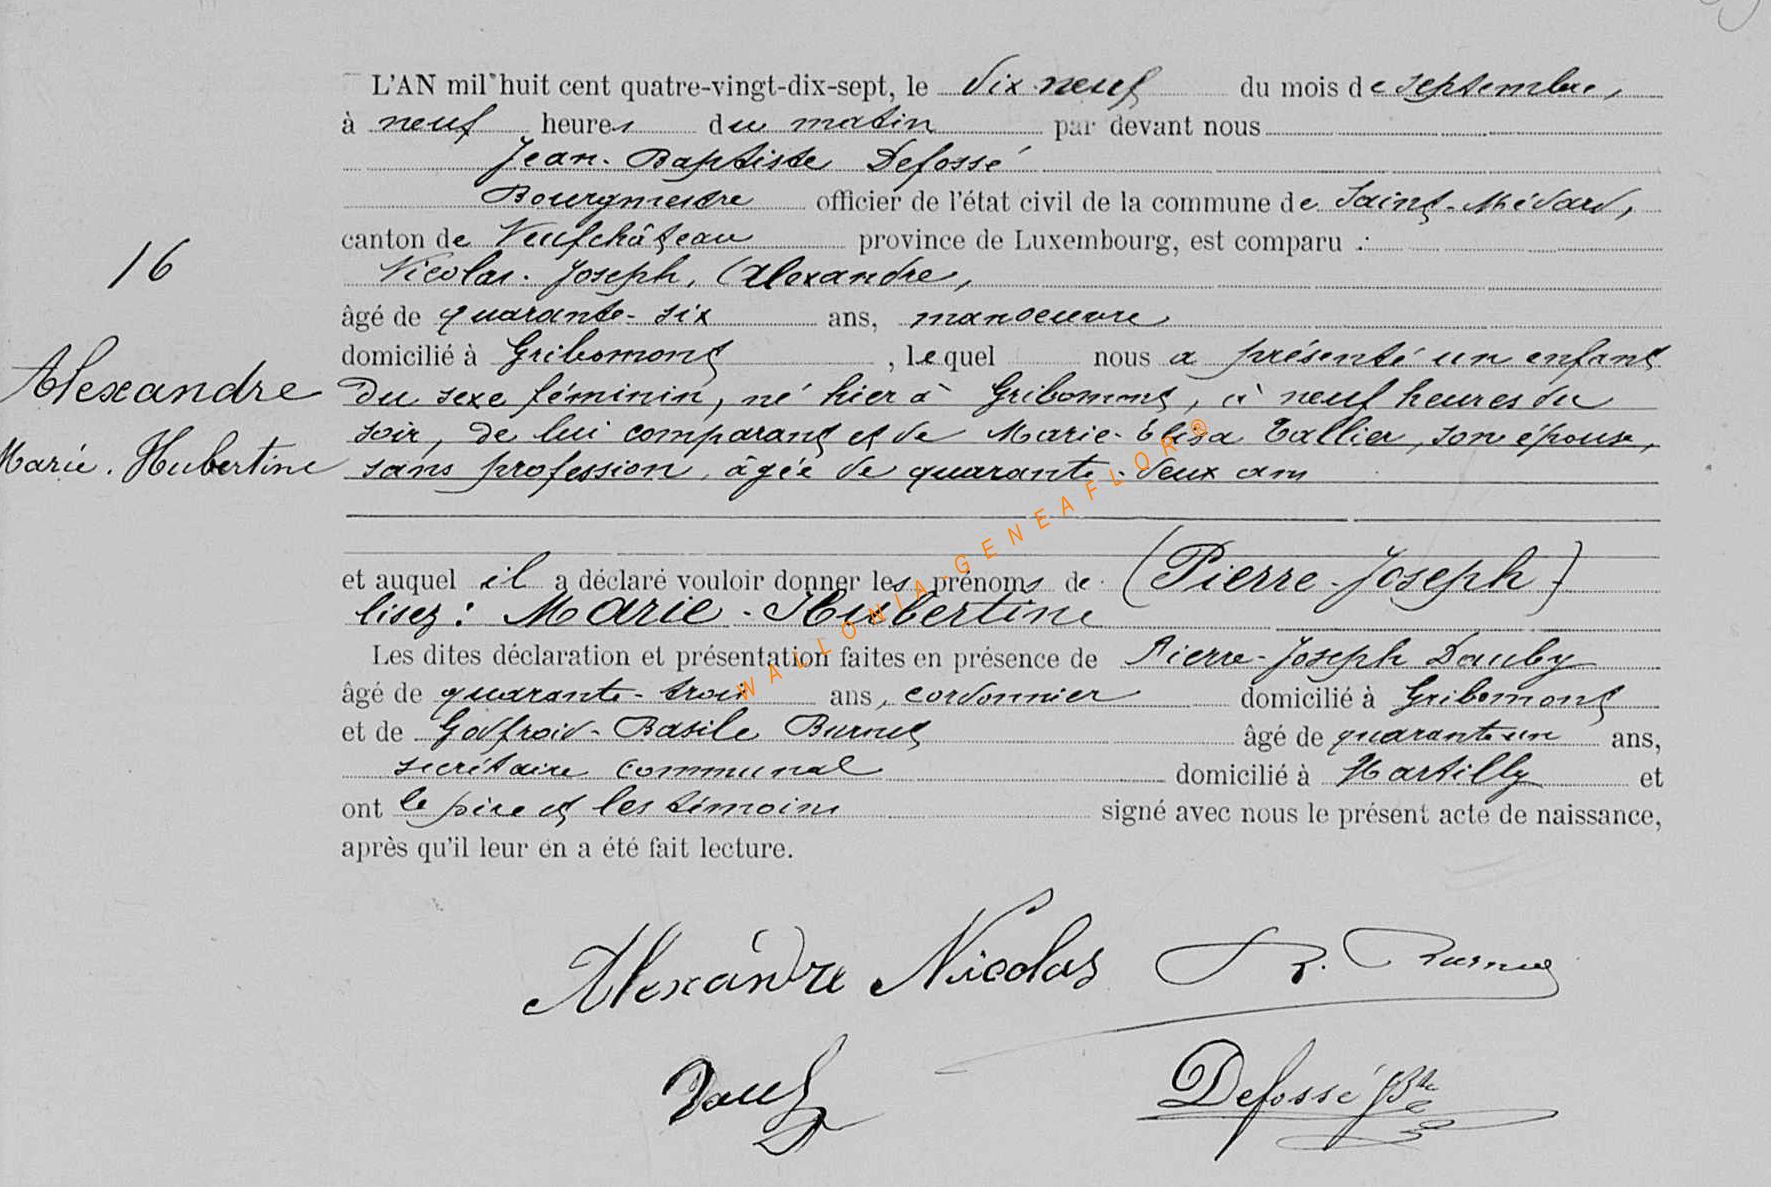 L'AN mil huit cent quatre-vingt-dix-sept, le dix neuf du mois de septembre,
à neuf heures du matin par devant nous
Jean-Baptiste Defossé
Bourgmestre officier de l'état civil de la commune de Saint-Médard,
canton de Neufchâteau province de Luxembourg, est comparu :
Nicolas-Joseph, Alexandre,
âgé de quarante-six ans, manoeuvre
domicilié à Gribomont, lequel nous a présenté un enfant
du sexe féminin, né hier à Gribomont, à neuf heures du
soir, de lui comparant et de Marie-Elisa Tallier, son épouse,
sans profession, âgée de quarante-deux ans
16
Alexandre
Marie-Hubertine
et auquel il a déclaré vouloir donner les prénoms de (Pierre-Joseph)
lisez : Marie-Hubertine
Les dites déclaration et présentation faites en présence de Pierre-Joseph Dauby
âgé de quarante-trois ans, cordonnier domicilié à Gribomont
et de Godfroid-Basile Burnet âgé de quarante un ans,
secrétaire communal domicilié à Martilly et
ont le père et les témoins signé avec nous le présent acte de naissance,
après qu'il leur en a été fait lecture.
Alexandre Nicolas
Defossé JBte
WALLONIA-GENEAFLOR®